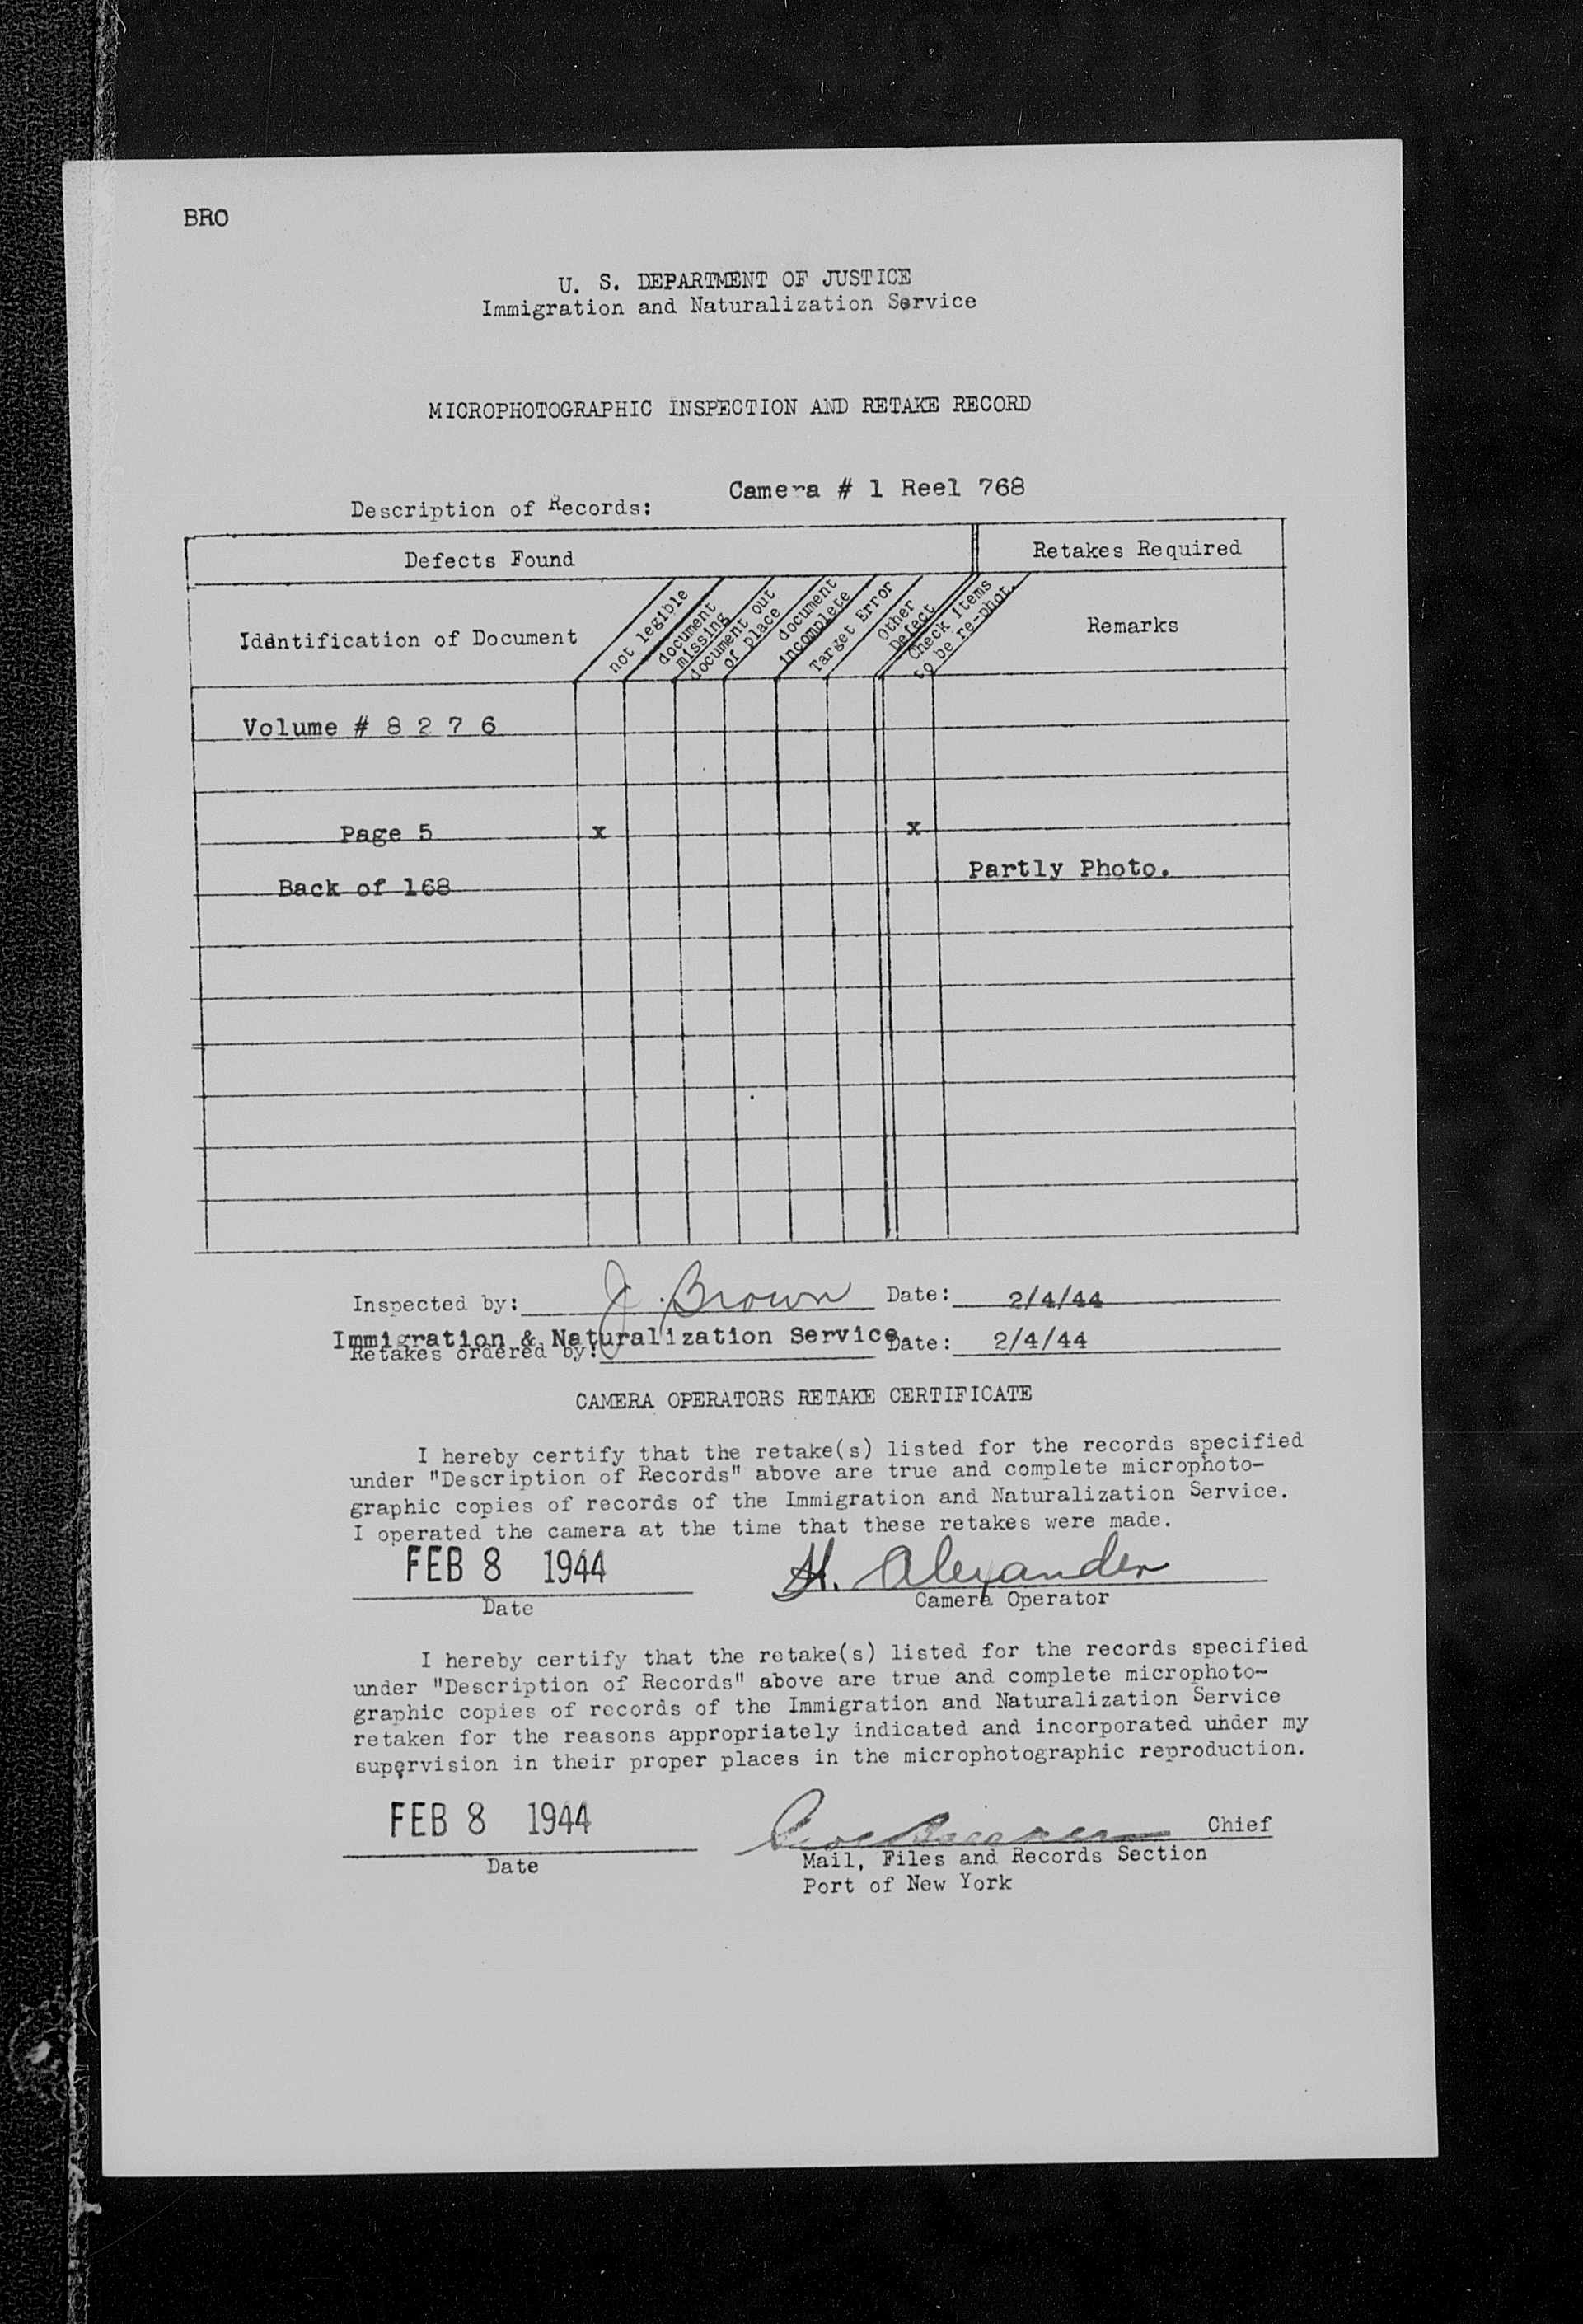 BRO
U. S. DEPARTMENT OF JUSTICE
Immigration and Naturalization Service
MICROPHOTOGRAPHIC INSPECTION AND RETAKE RECORD
Description of Records: Camera # 1 Reel 768
Defects Found Retakes Required
Identification of Document
not legible
document missing
document out of place
document incomplete
Target Error
Other Defect
Check items to be re-phot.
Remarks
Volume # 8 2 7 6
Page 5 x x
Back of 168 Partly Photo.
Inspected by: J. Brown Date: 2/4/44
Immigration & Naturalization Service.
Retakes ordered by: Date: 2/4/44
CAMERA OPERATORS RETAKE CERTIFICATE
I hereby certify that the retake(s) listed for the records specified
under "Description of Records" above are true and complete microphoto-
graphic copies of records of the Immigration and Naturalization Service.
I operated the camera at the time that these retakes were made.
FEB 8 1944 H. Alexander
Date Camera Operator
I hereby certify that the retake(s) listed for the records specified
under "Description of Records" above are true and complete microphoto-
graphic copies of records of the Immigration and Naturalization Service
retaken for the reasons appropriately indicated and incorporated under my
supervision in their proper places in the microphotographic reproduction.
FEB 8 1944 Chief
Date Mail, Files and Records Section
Port of New York